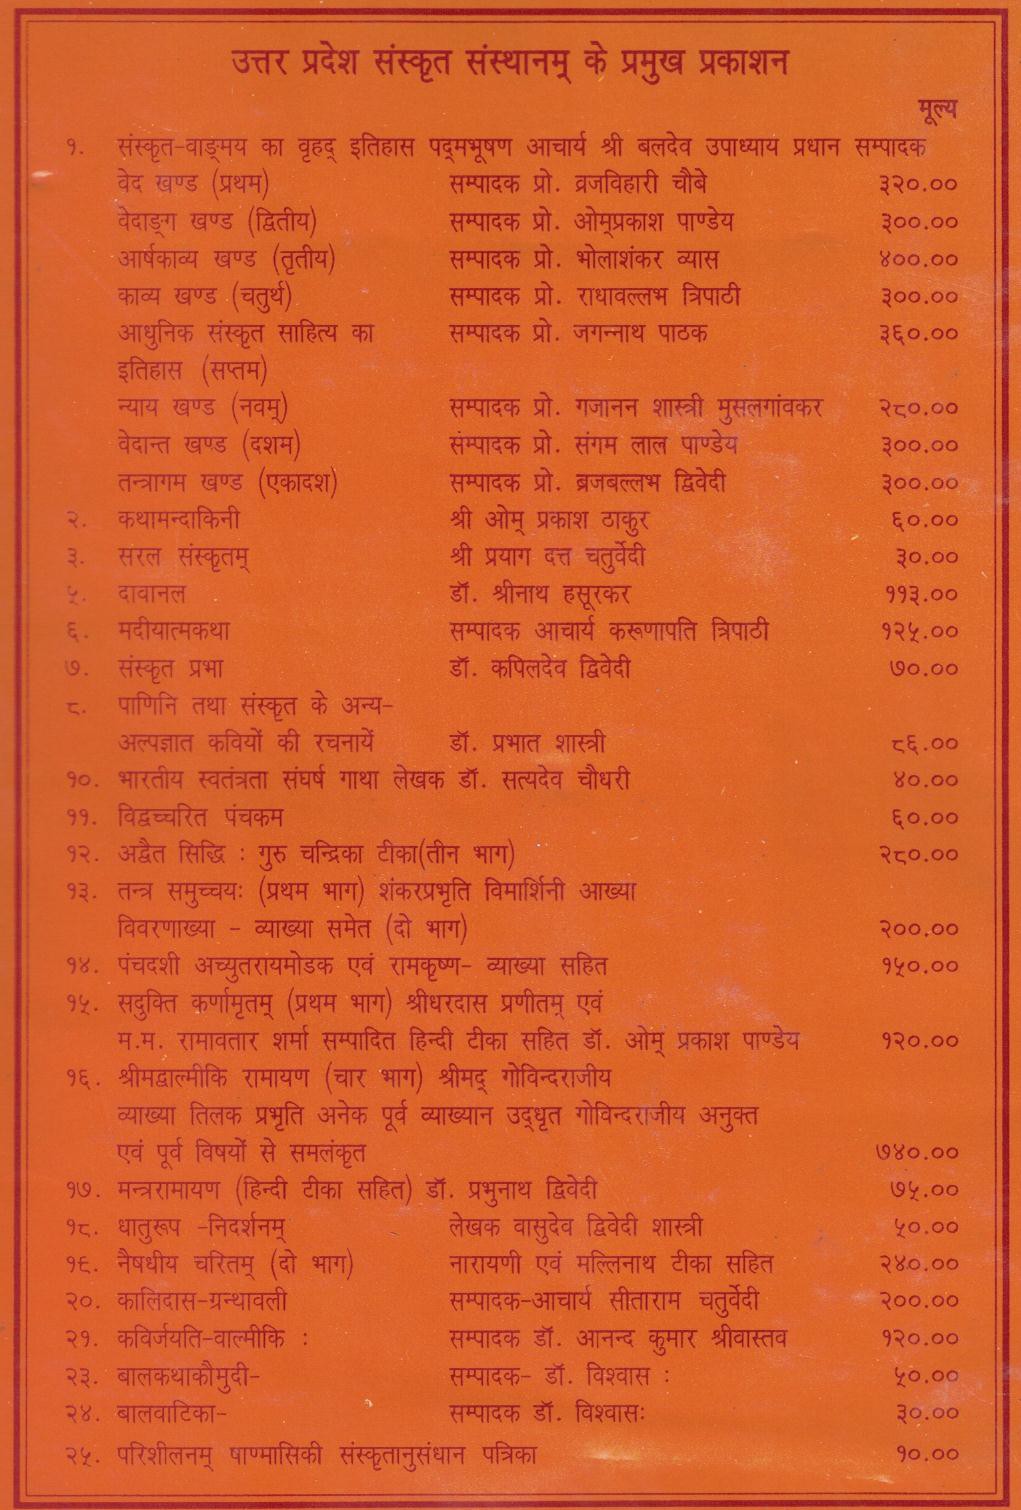 उत्तर प्रदेश संस्कृत संस्थानम् के प्रमुख प्रकाशन
मूल्य
१. संस्कृत-वाङ्मय का वृहद् इतिहास पद्मभूषण आचार्य श्री बलदेव उपाध्याय प्रधान सम्पादक
वेद खण्ड (प्रथम) सम्पादक प्रो. व्रजविहारी चौबे ३२०.००
वेदाङ्ग खण्ड (द्वितीय) सम्पादक प्रो. ओम्प्रकाश पाण्डेय ३००.००
आर्षकाव्य खण्ड (तृतीय) सम्पादक प्रो. भोलाशंकर व्यास ४००.००
काव्य खण्ड (चतुर्थ) सम्पादक प्रो. राधावल्लभ त्रिपाठी ३००.००
आधुनिक संस्कृत साहित्य का सम्पादक प्रो. जगन्नाथ पाठक ३६०.००
इतिहास (सप्तम)
न्याय खण्ड (नवम्) सम्पादक प्रो. गजानन शास्त्री मुसलगांवकर २८०.००
वेदान्त खण्ड (दशम) संम्पादक प्रो. संगम लाल पाण्डेय ३००.००
तन्त्रागम खण्ड (एकादश) सम्पादक प्रो. ब्रजबल्लभ द्विवेदी ३००.००
२. कथामन्दाकिनी श्री ओम् प्रकाश ठाकुर ६०.००
३. सरल संस्कृतम् श्री प्रयाग दत्त चतुर्वेदी ३०.००
५. दावानल डॉ. श्रीनाथ हसूरकर ११३.००
६. मदीयात्मकथा सम्पादक आचार्य करूणापति त्रिपाठी १२५.००
७. संस्कृत प्रभा डॉ. कपिलदेव द्विवेदी ७०.००
८. पाणिनि तथा संस्कृत के अन्य-
अल्पज्ञात कवियों की रचनायें डॉ. प्रभात शास्त्री ८६.००
१०. भारतीय स्वतंत्रता संघर्ष गाथा लेखक डॉ. सत्यदेव चौधरी ४०.००
११. विद्वच्चरित पंचकम ६०.००
१२. अद्वैत सिद्धि : गुरु चन्द्रिका टीका(तीन भाग) २८०.००
१३. तन्त्र समुच्चयः (प्रथम भाग) शंकरप्रभृति विमार्शिनी आख्या
विवरणाख्या - व्याख्या समेत (दो भाग) २००.००
१४. पंचदशी अच्युतरायमोडक एवं रामकृष्ण- व्याख्या सहित १५०.००
१५. सदुक्ति कर्णामृतम् (प्रथम भाग) श्रीधरदास प्रणीतम् एवं
म.म. रामावतार शर्मा सम्पादित हिन्दी टीका सहित डॉ. ओम् प्रकाश पाण्डेय १२०.००
१६. श्रीमद्वाल्मीकि रामायण (चार भाग) श्रीमद् गोविन्दराजीय
व्याख्या तिलक प्रभृति अनेक पूर्व व्याख्यान उद्धृत गोविन्दराजीय अनुक्त
एवं पूर्व विषयों से समलंकृत ७४०.००
१७. मन्त्ररामायण (हिन्दी टीका सहित) डॉ. प्रभुनाथ द्विवेदी ७५.००
१८. धातुरूप -निदर्शनम् लेखक वासुदेव द्विवेदी शास्त्री ५०.००
१९. नैषधीय चरितम् (दो भाग) नारायणी एवं मल्लिनाथ टीका सहित २४०.००
२०. कालिदास-ग्रन्थावली सम्पादक-आचार्य सीताराम चतुर्वेदी २००.००
२१. कविर्जयति-वाल्मीकि : सम्पादक डॉ. आनन्द कुमार श्रीवास्तव १२०.००
२३. बालकथाकौमुदी- सम्पादक- डॉ. विश्वास : ५०.००
२४. बालवाटिका- सम्पादक डॉ. विश्वासः ३०.००
२५. परिशीलनम् षाण्मासिकी संस्कृतानुसंधान पत्रिका १०.००